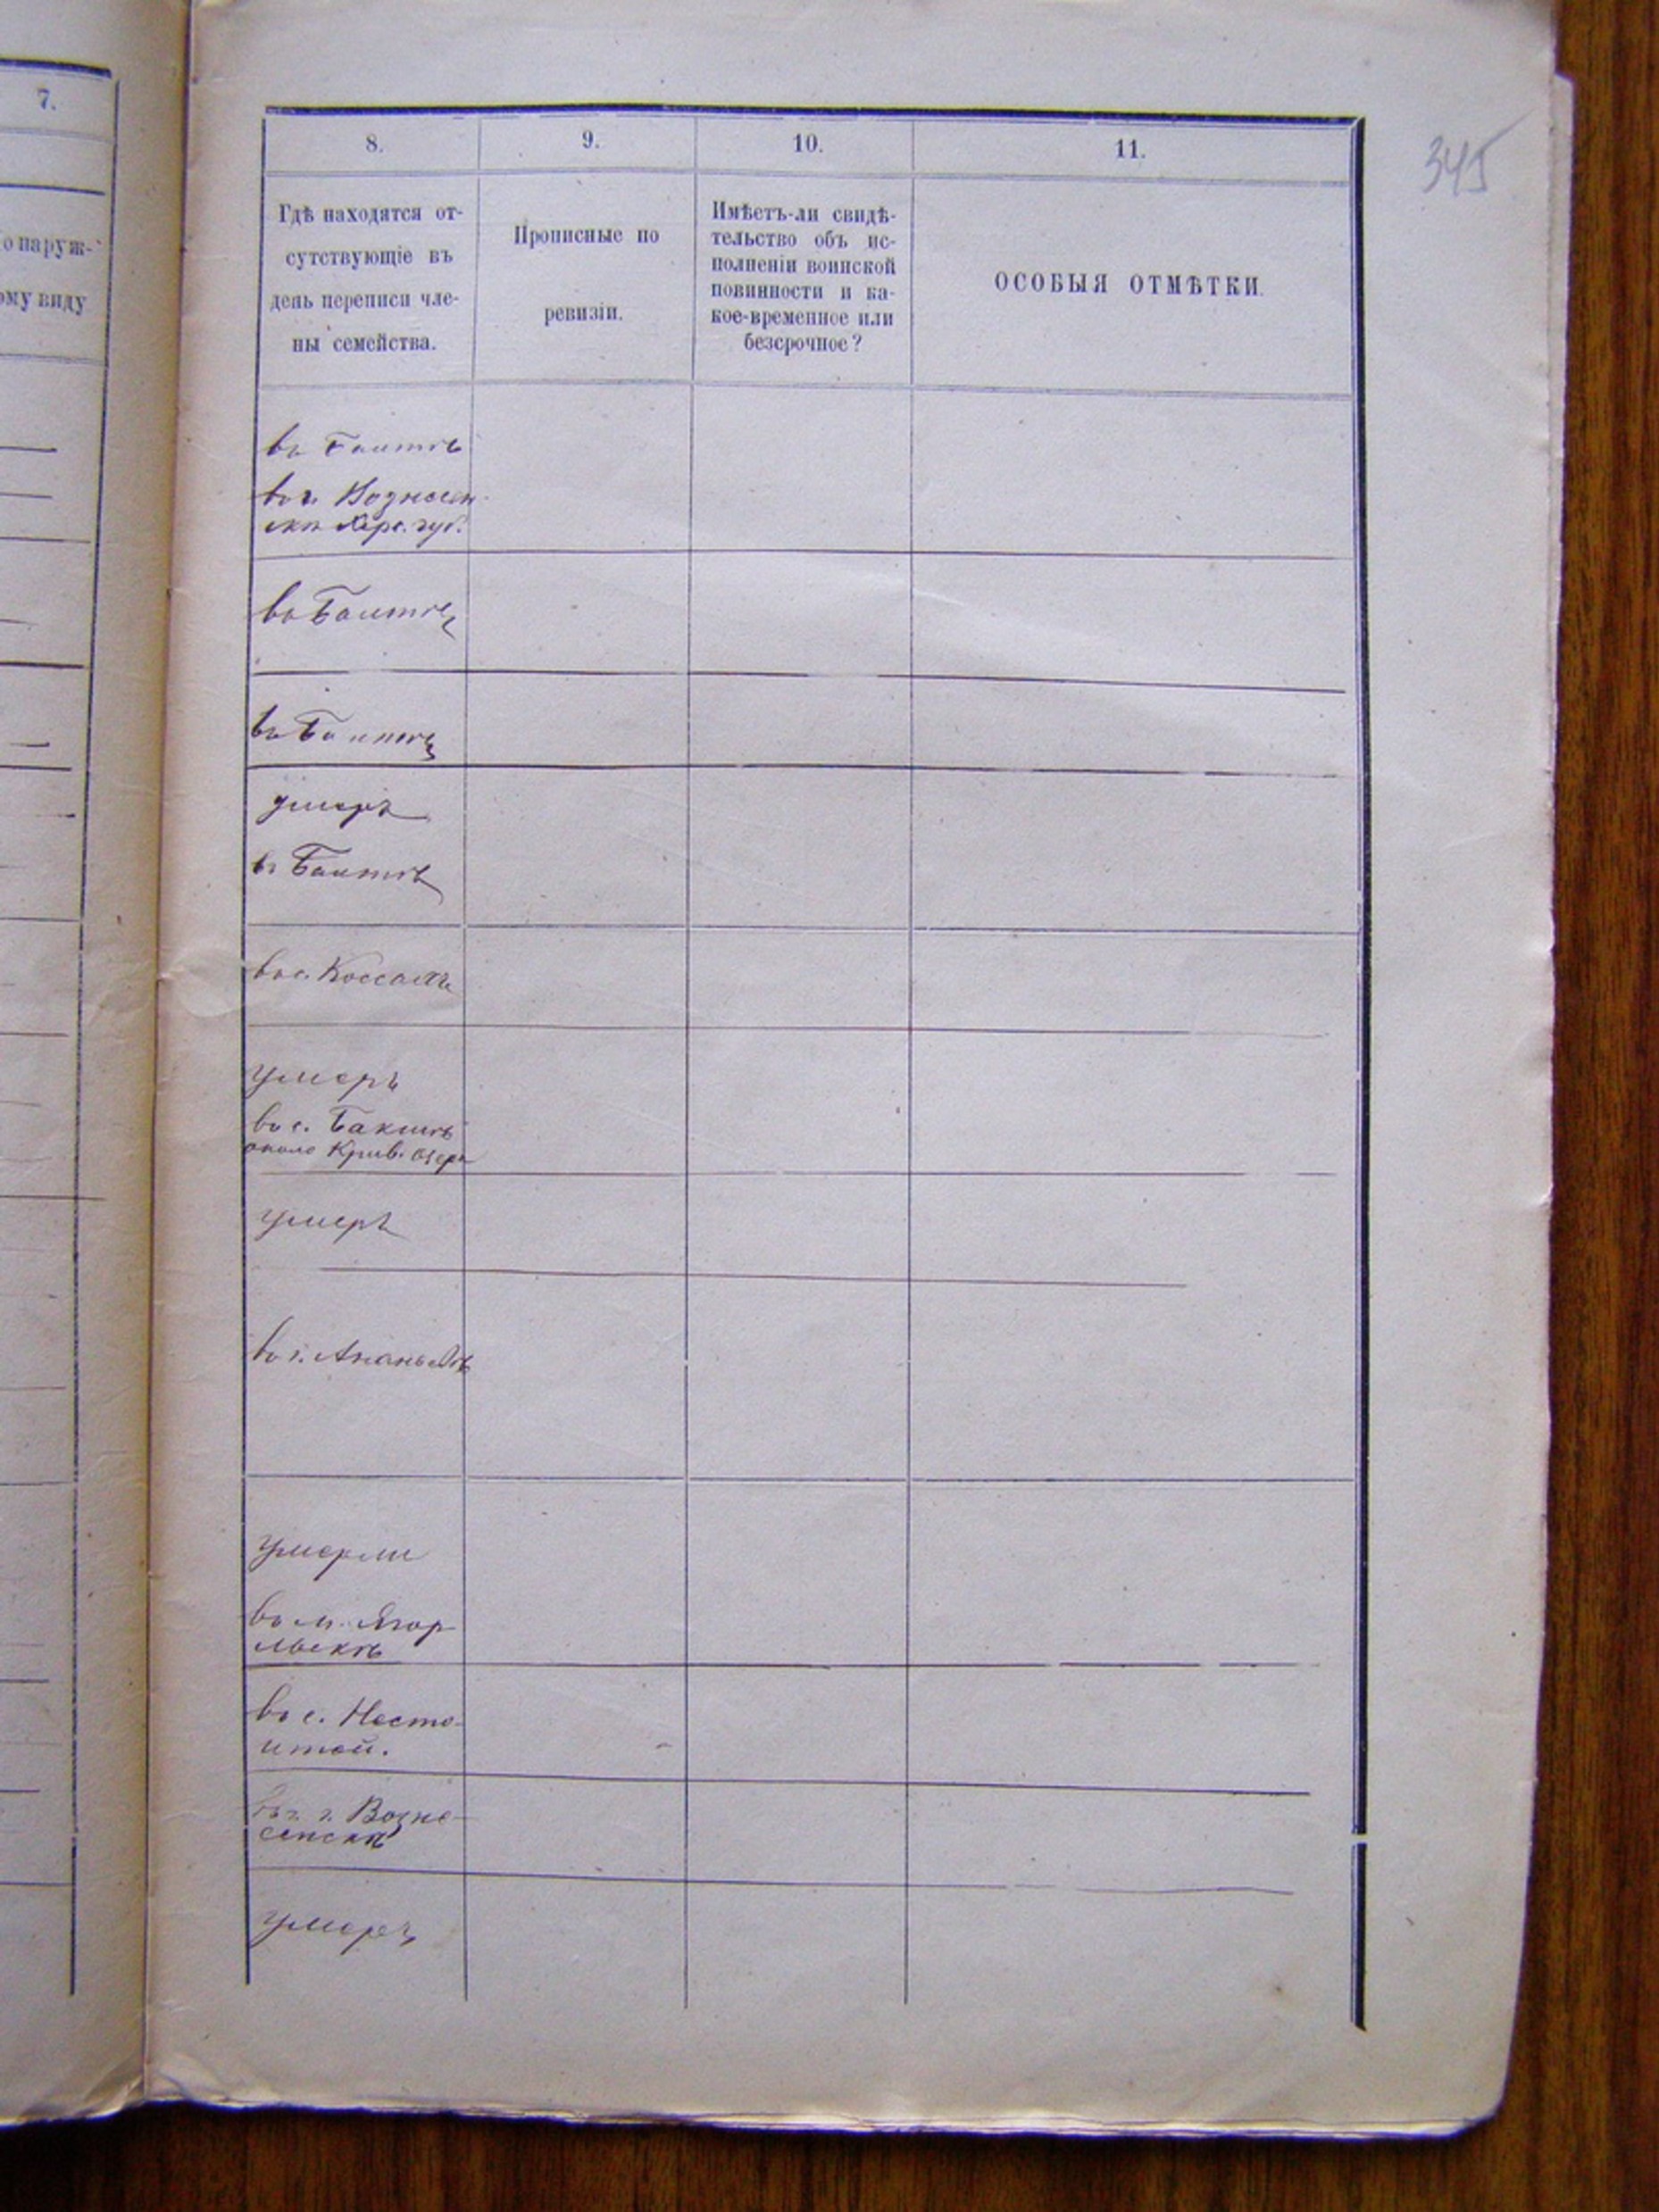 7.
о наруж-
ому виду
345
8.
9.
10.
11.
Гдѣ находятся от-
сутствующіе въ
день переписи чле-
ны семейства.
Прописные по
ревизіи.
Имѣетъ-ли свидѣ-
тельство объ ис-
полненіи воинской
повинности и ка-
кое-временное или
безсрочное?
ОСОБЫЯ ОТМѢТКИ.
въ Балтѣ
въ г. Вознесен-
скѣ Херс. губ.
въ Балтѣ
въ Балтѣ
умеръ
въ Балтѣ
въ с.
умеръ
въ с. Бакшѣ
около Крив. Озера
умеръ
въ г. Ананьевѣ
умерли
въ м. Ягор-
лыкѣ
въ с. Несто-
итой.
въ г. Возне-
сенскѣ
умеръ